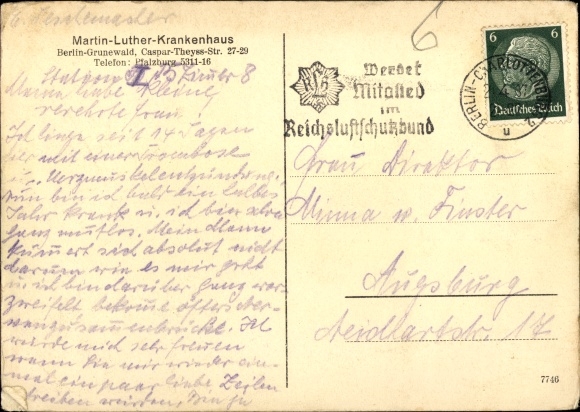 Martin-Luther-Krankenhaus
Berlin-Grunewald, Caspar-Theyss-Str. 27-29
Telefon: Pfalzburg 5311-16
Station I, Zimer 8
Meine liebe kleine
verehrte Frau!
Ich liege seit 14 Tagen
hier mit einer
u. Herzmuskelentzündung,
nun bin ich bald ein halbes
Jahr krank u. ich bin schon
ganz mutlos. Mein Mann
kümert sich absolut nicht
darum wie es mir geht
u. ich bin darüber ganz ver
zweifelt bekome öfters Ner-
venzusamenbrüche. Ich
würde mich sehr freuen
wenn Sie mir wieder ein-
mal ein paar liebe Zeilen
schreiben würden, Bin ja
Werdet
Mitglied
im
Reichsluftschutzbund
BERLIN-CHARLOTTENBURG 2
u
6 6
Deutsches Reich
6
Frau Direktor
Minna v. Finster
Augsburg
7746